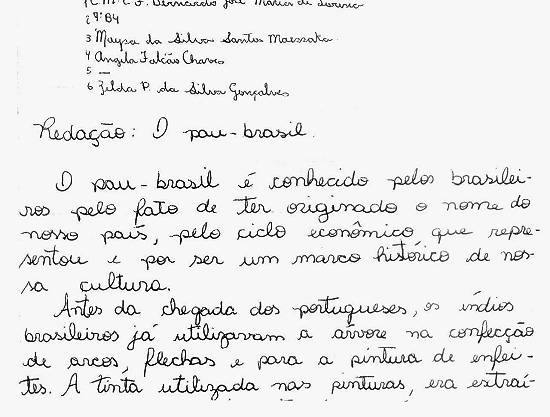 1 C.M.C.F. Bernardo José Maria de
2 9º 84
3 Maysa da Silva Santos
4 Angela Falcão Chaves
5 —
6 Zilda P. da Silva Gonçalves
Redação: O pau-brasil.
O pau-brasil é conhecido pelos brasilei-
ros pelo fato de ter originado o nome do
nosso país, pelo ciclo econômico que repre-
sentou e por ser um marco histórico de nos-
sa cultura.
Antes da chegada dos portugueses, os índios
brasileiros já utilizavam a árvore na confecção
de arcos, flechas e para a pintura de enfei-
tes. A tinta utilizada nas pinturas, era extraí-